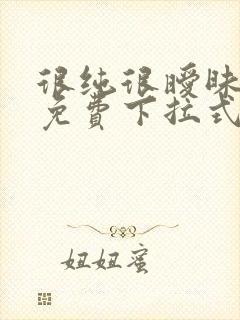 很纯很暧昧
免费下拉式
妞妞蜜